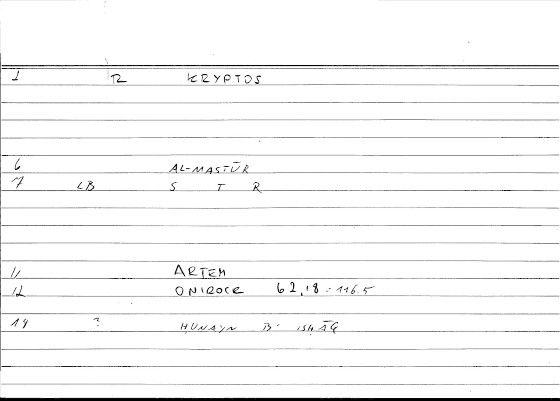 1 R KRYPTOS
6 AL-MASTŪR
7 LB S T R
11 ARTEM
12 ONIROCR 62,18 = 116.5
14 ? ḤUNAYN B. ISḤĀQ